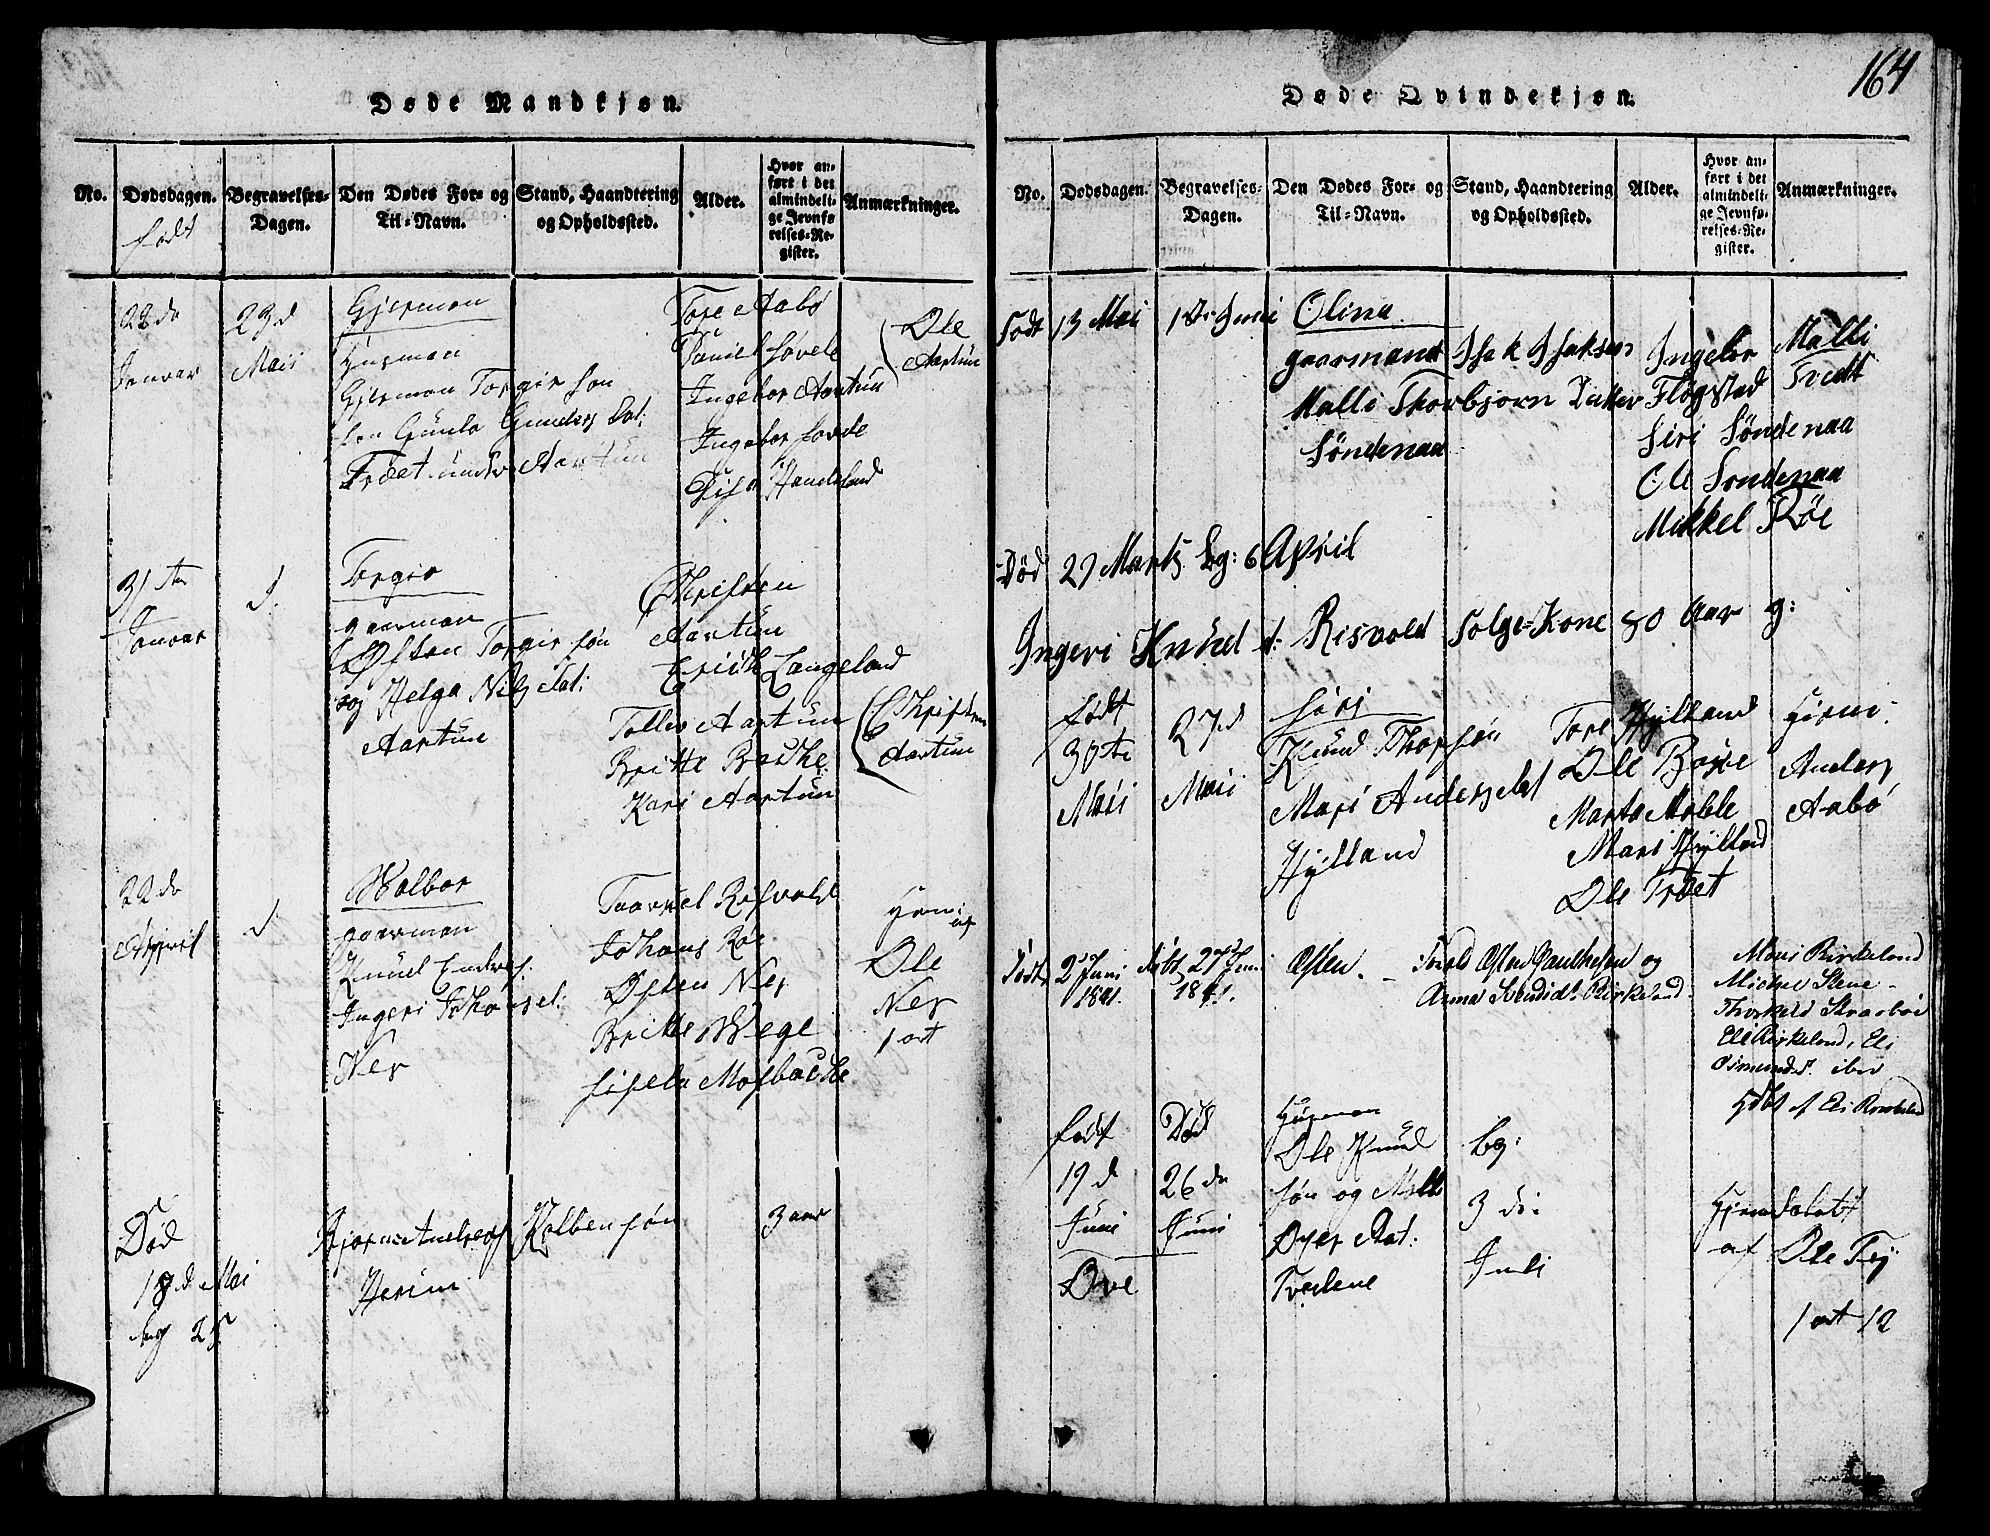 Døde Mandkjøn.
No.
Dødsdagen.
født
Begravelses-
Dagen.
Den Dødes For- og
Til-Navn.
Stand, Haandtering
og Opholdssted.
Alder.
Hvor an-
ført i det
almindeli-
ge Jevnfø
relses-Re-
gister.
Anmærkninger.
22de
Janvar
23d
Maii
Gjermon
Husmon
Gjermon Torgir søn
Gunla Gunders Dat:
Træet under Aartun
Tore Aabø
Daniel Høvele
Ingebor Aartun
Ingebor
Handeland
Ole
Aartun
31 te
Janvar
d.
Torgir
gaarmon
Østen Torgir søn
og Helga Nils Dat:
Aartun
Christen
Aartun
Erich Langeland
Tollev Aartun
Britte Bakke
Kari Aartun
Christen
Aartun
22de
April
d
Wolbor
gaarmon
Knuel Endres:
Ingeri Johansd:
Nes
Taarkel Risvold
Johans Røe
Østen Nes
Britte Wege
Sisela Mosbakke
Hiem:
af
Ole
Nes
1 ort
Død
18d Mai
bg 25
Bjørn Andreas Kolbensøn
Herim
3 aar
Døde Qvindekjøn.
164
No.
Dødsdagen.
Begravelses-
Dagen.
Den Dødes For- og
Til-Navn.
Stand, Haandtering
og Opholdssted.
Alder.
Hvor an-
ført i det
almindeli-
ge Jevnfø-
relses-Re-
gister.
Anmærkninger.
Født 13 Mai
1ste Juni
Olina
gaarmand Isak Isaksen
Malli Thorbjørn Datter
Søndenaa
Ingebor Malli
Fløgstad Tvedt
Siri Søndenaa
Ole Søndenaa
Mikkel Røe
Død 27 Marts. bg: 6 April
Ingeri Knud d: Risvold Solge-Kone 80 Aar g:
født
30te
Maii
27d
Maii
Siri
Knud Thorsøn
Mari Anders Dat
Hylland
Tore Hylland
Ole Boge
Marta Moble
Mari Hylland
Ole Træet
Hjem:
Anders
Aabø
Født
2d Juni
1841.
døbt 27d Juni
1841.
Østen.
Østen Paulsesen og
Anna Svendsd. Birkeland.
Mons Birkeland
Mickel Stene
Thorkeld Straabøe
Eli Birkeland, Eli
Osmundsd. iber
Hdbt af Eli Birkeland
født
19d
Juni
Ove
Død
26de
Juni
Husmon
Ole Knud
søn og Malli
Over Dat:
Tvedene
bg:
3 die
Juli
Hjemdøbt
af Ole Tvj
1 ort 12